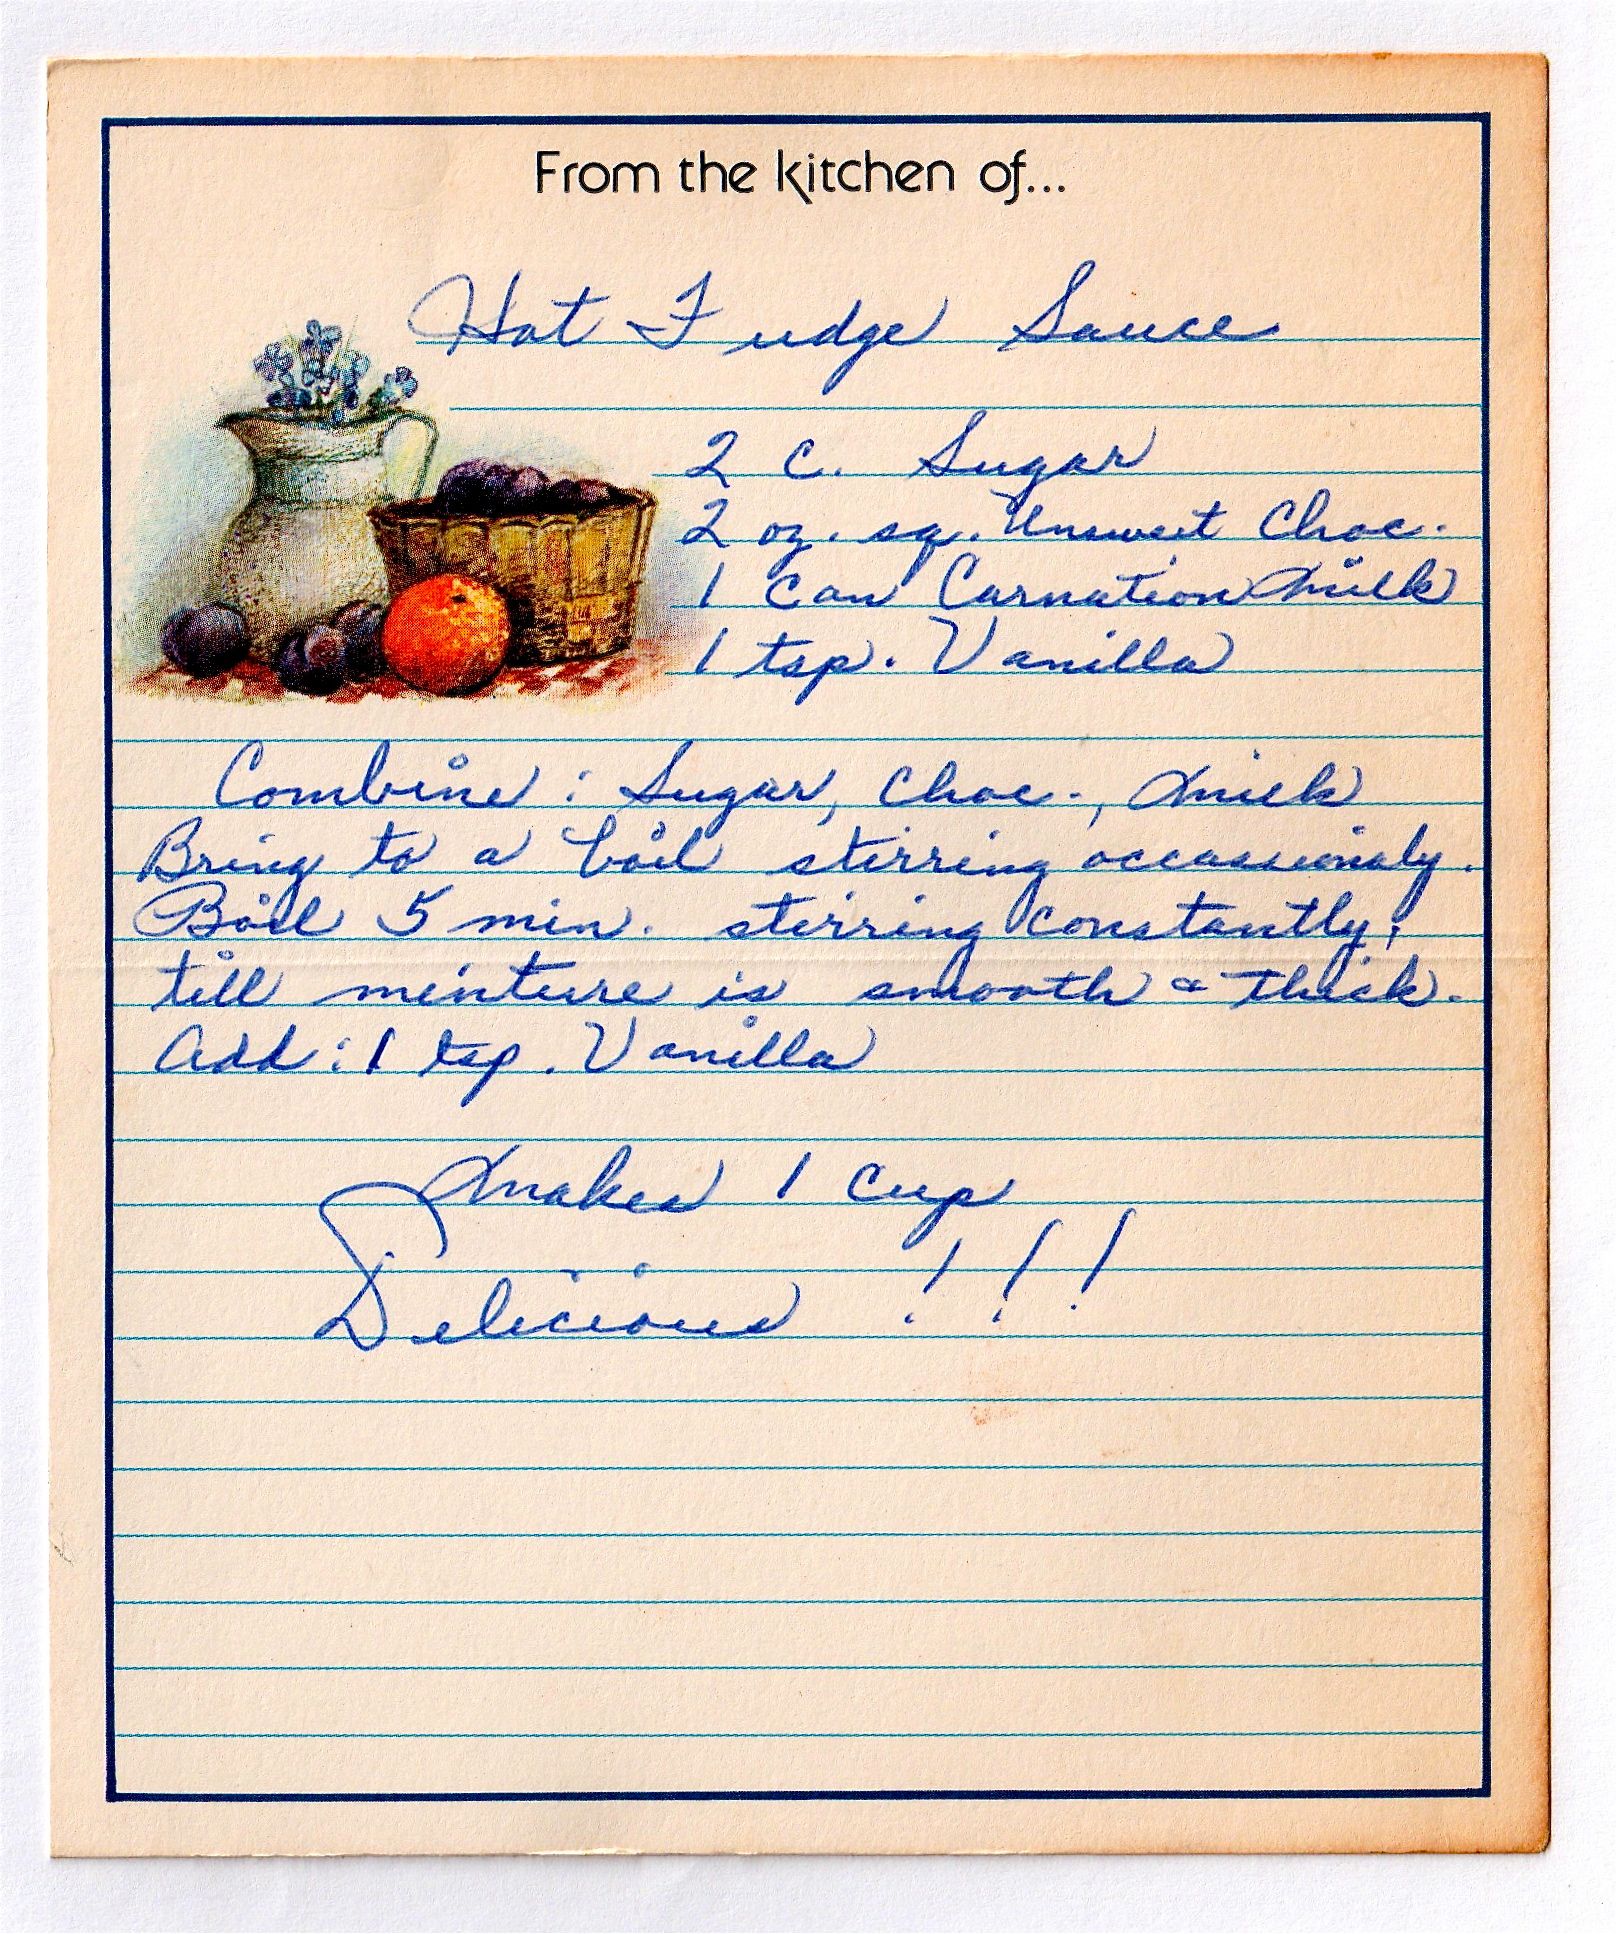 From the kitchen of...
Hot Fudge Sauce
2 c. Sugar
2 oz. sq. Unsweet Choc.
1 can Carnation Milk
1 tsp. Vanilla
Combine: Sugar, Choc., Milk
Bring to a boil stirring occassionaly.
Boil 5 min. stirring constantly,
till mixture is smooth & thick.
Add: 1 tsp. Vanilla
Makes 1 cup
Delicious !!!